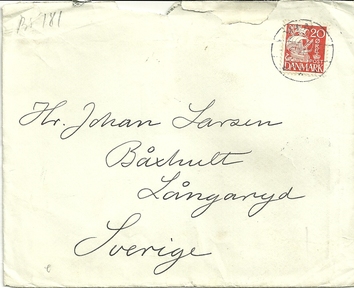 Bx 181
20
ØRE
POST
DANMARK
Hr. Johan Larsen
Båxhult
Långaryd
Sverige